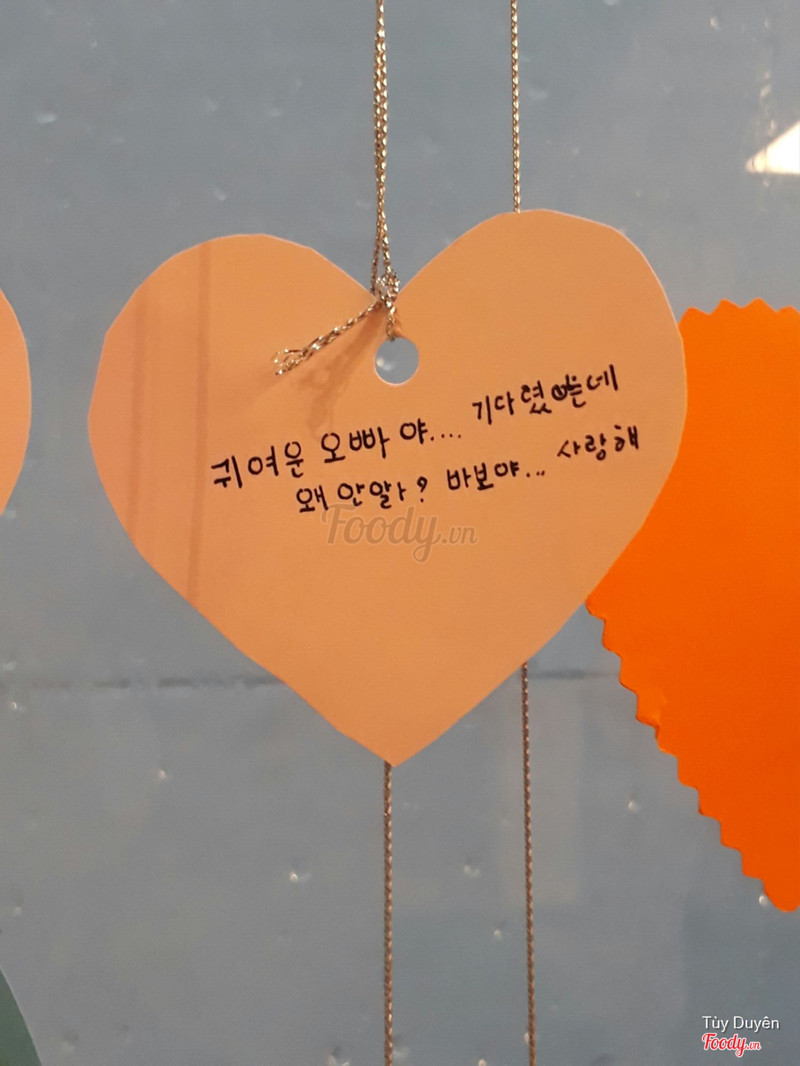 귀여운 오빠야.... 기다렸는데
왜 안알아? 바보야... 사랑해
Foody.vn
Tùy Duyên
Foody.vn